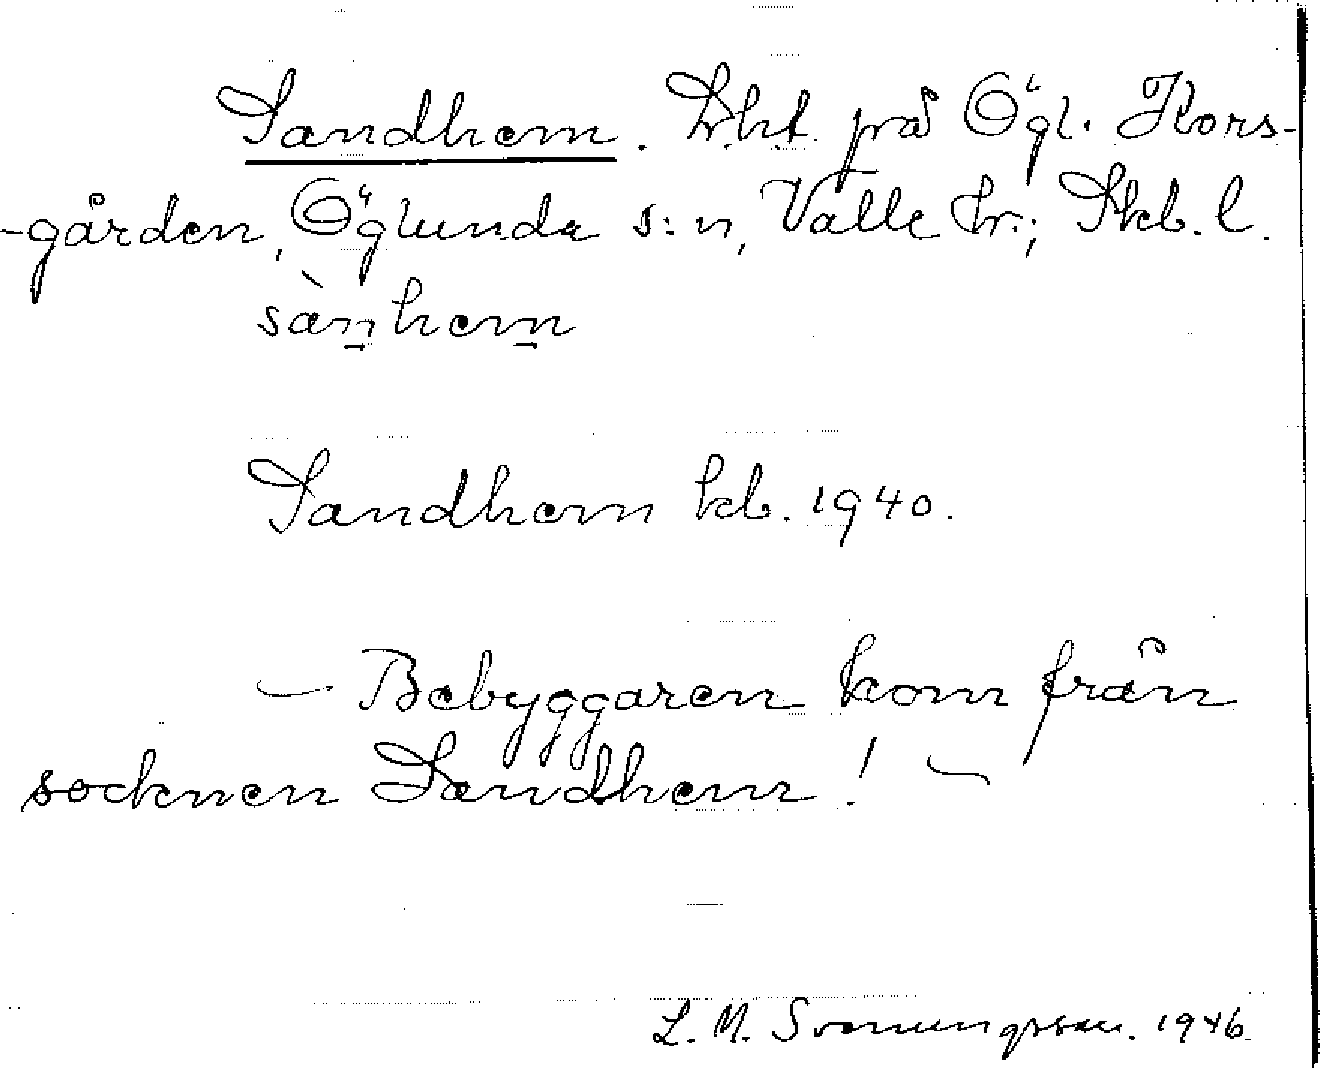 Sandhem. Lht. på Ögl. Kors-
-gården, Öglunda s:n, Valle hr.; Skb. l.
sànhem
Sandhem kb. 1940.
— Bebyggaren kom från
socknen Sandhem! —
L. M. Svenungsson. 1946.